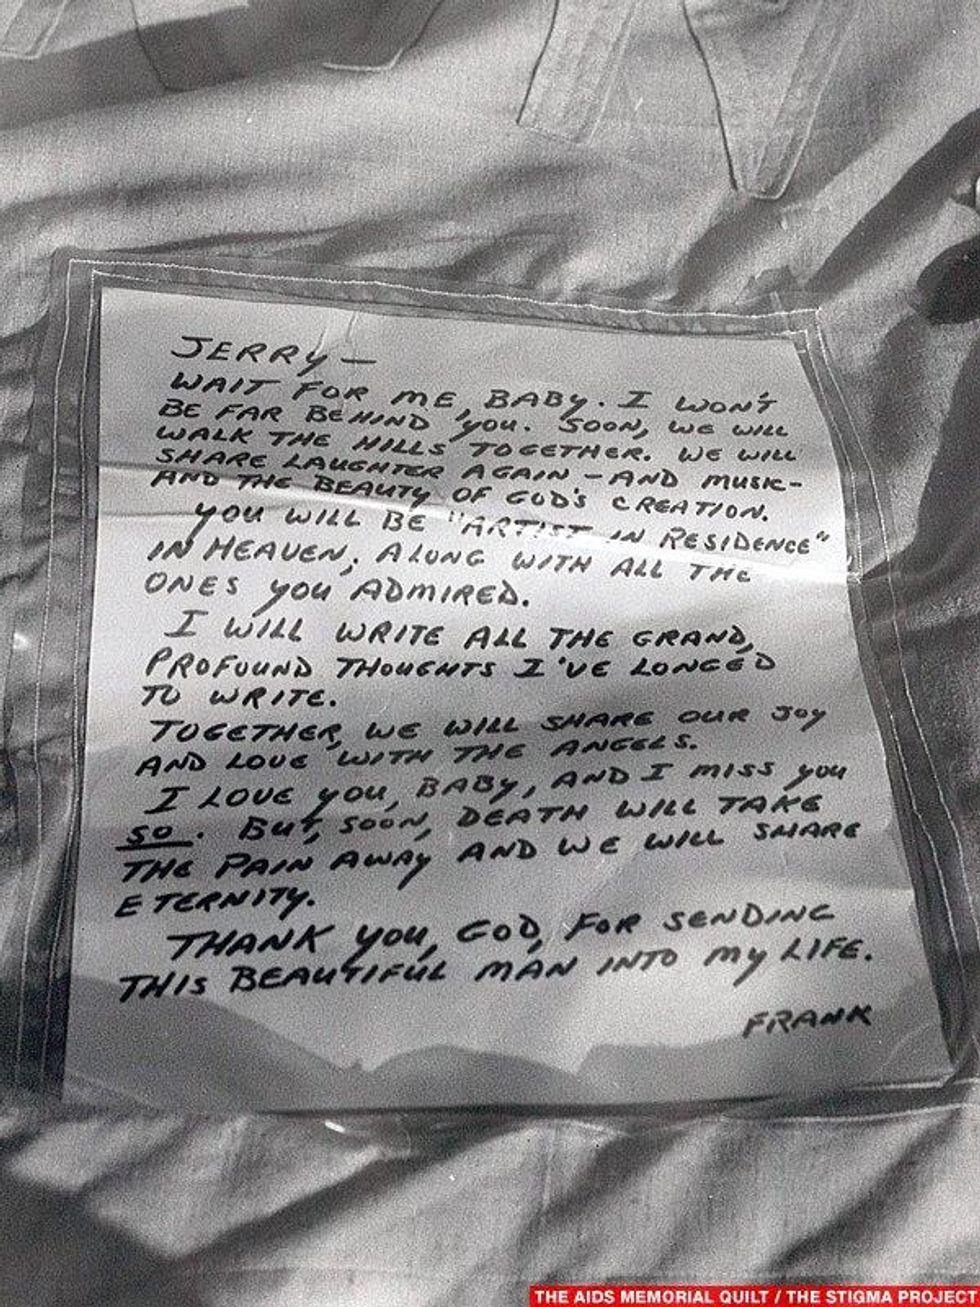 JERRY—
WAIT FOR ME, BABY. I WON'T
BE FAR BEHIND YOU. SOON, WE WILL
WALK THE HILLS TOGETHER. WE WILL
SHARE LAUGHTER AGAIN – AND MUSIC–
AND THE BEAUTY OF GOD'S CREATION.
YOU WILL BE "ARTIST IN RESIDENCE"
IN HEAVEN, ALONG WITH ALL THE
ONES YOU ADMIRED.
I WILL WRITE ALL THE GRAND,
PROFOUND THOUGHTS I'VE LONGED
TO WRITE.
TOGETHER, WE WILL SHARE OUR JOY
AND LOVE WITH THE ANGELS.
I LOVE YOU, BABY, AND I MISS YOU
SO. BUT, SOON, DEATH WILL TAKE
THE PAIN AWAY AND WE WILL SHARE
ETERNITY.
THANK YOU, GOD, FOR SENDING
THIS BEAUTIFUL MAN INTO MY LIFE.
FRANK
THE AIDS MEMORIAL QUILT / THE STIGMA PROJECT